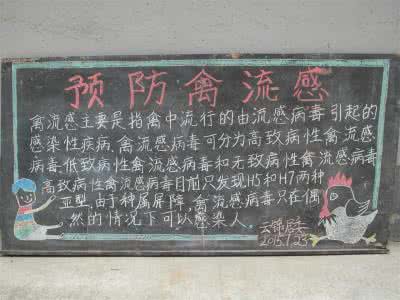 预防禽流感
禽流感主要是指禽中流行的由流感病毒引起的
感染性疾病,禽流感病毒可分为高致病性禽流感
病毒,低致病性禽流感病毒和无致病性禽流感病毒
高致病性禽流感病毒目前只发现H5和H7两种
亚型,由于种属屏障,禽流感病毒只在偶
然的情况下可以感染人.
2015.1.23